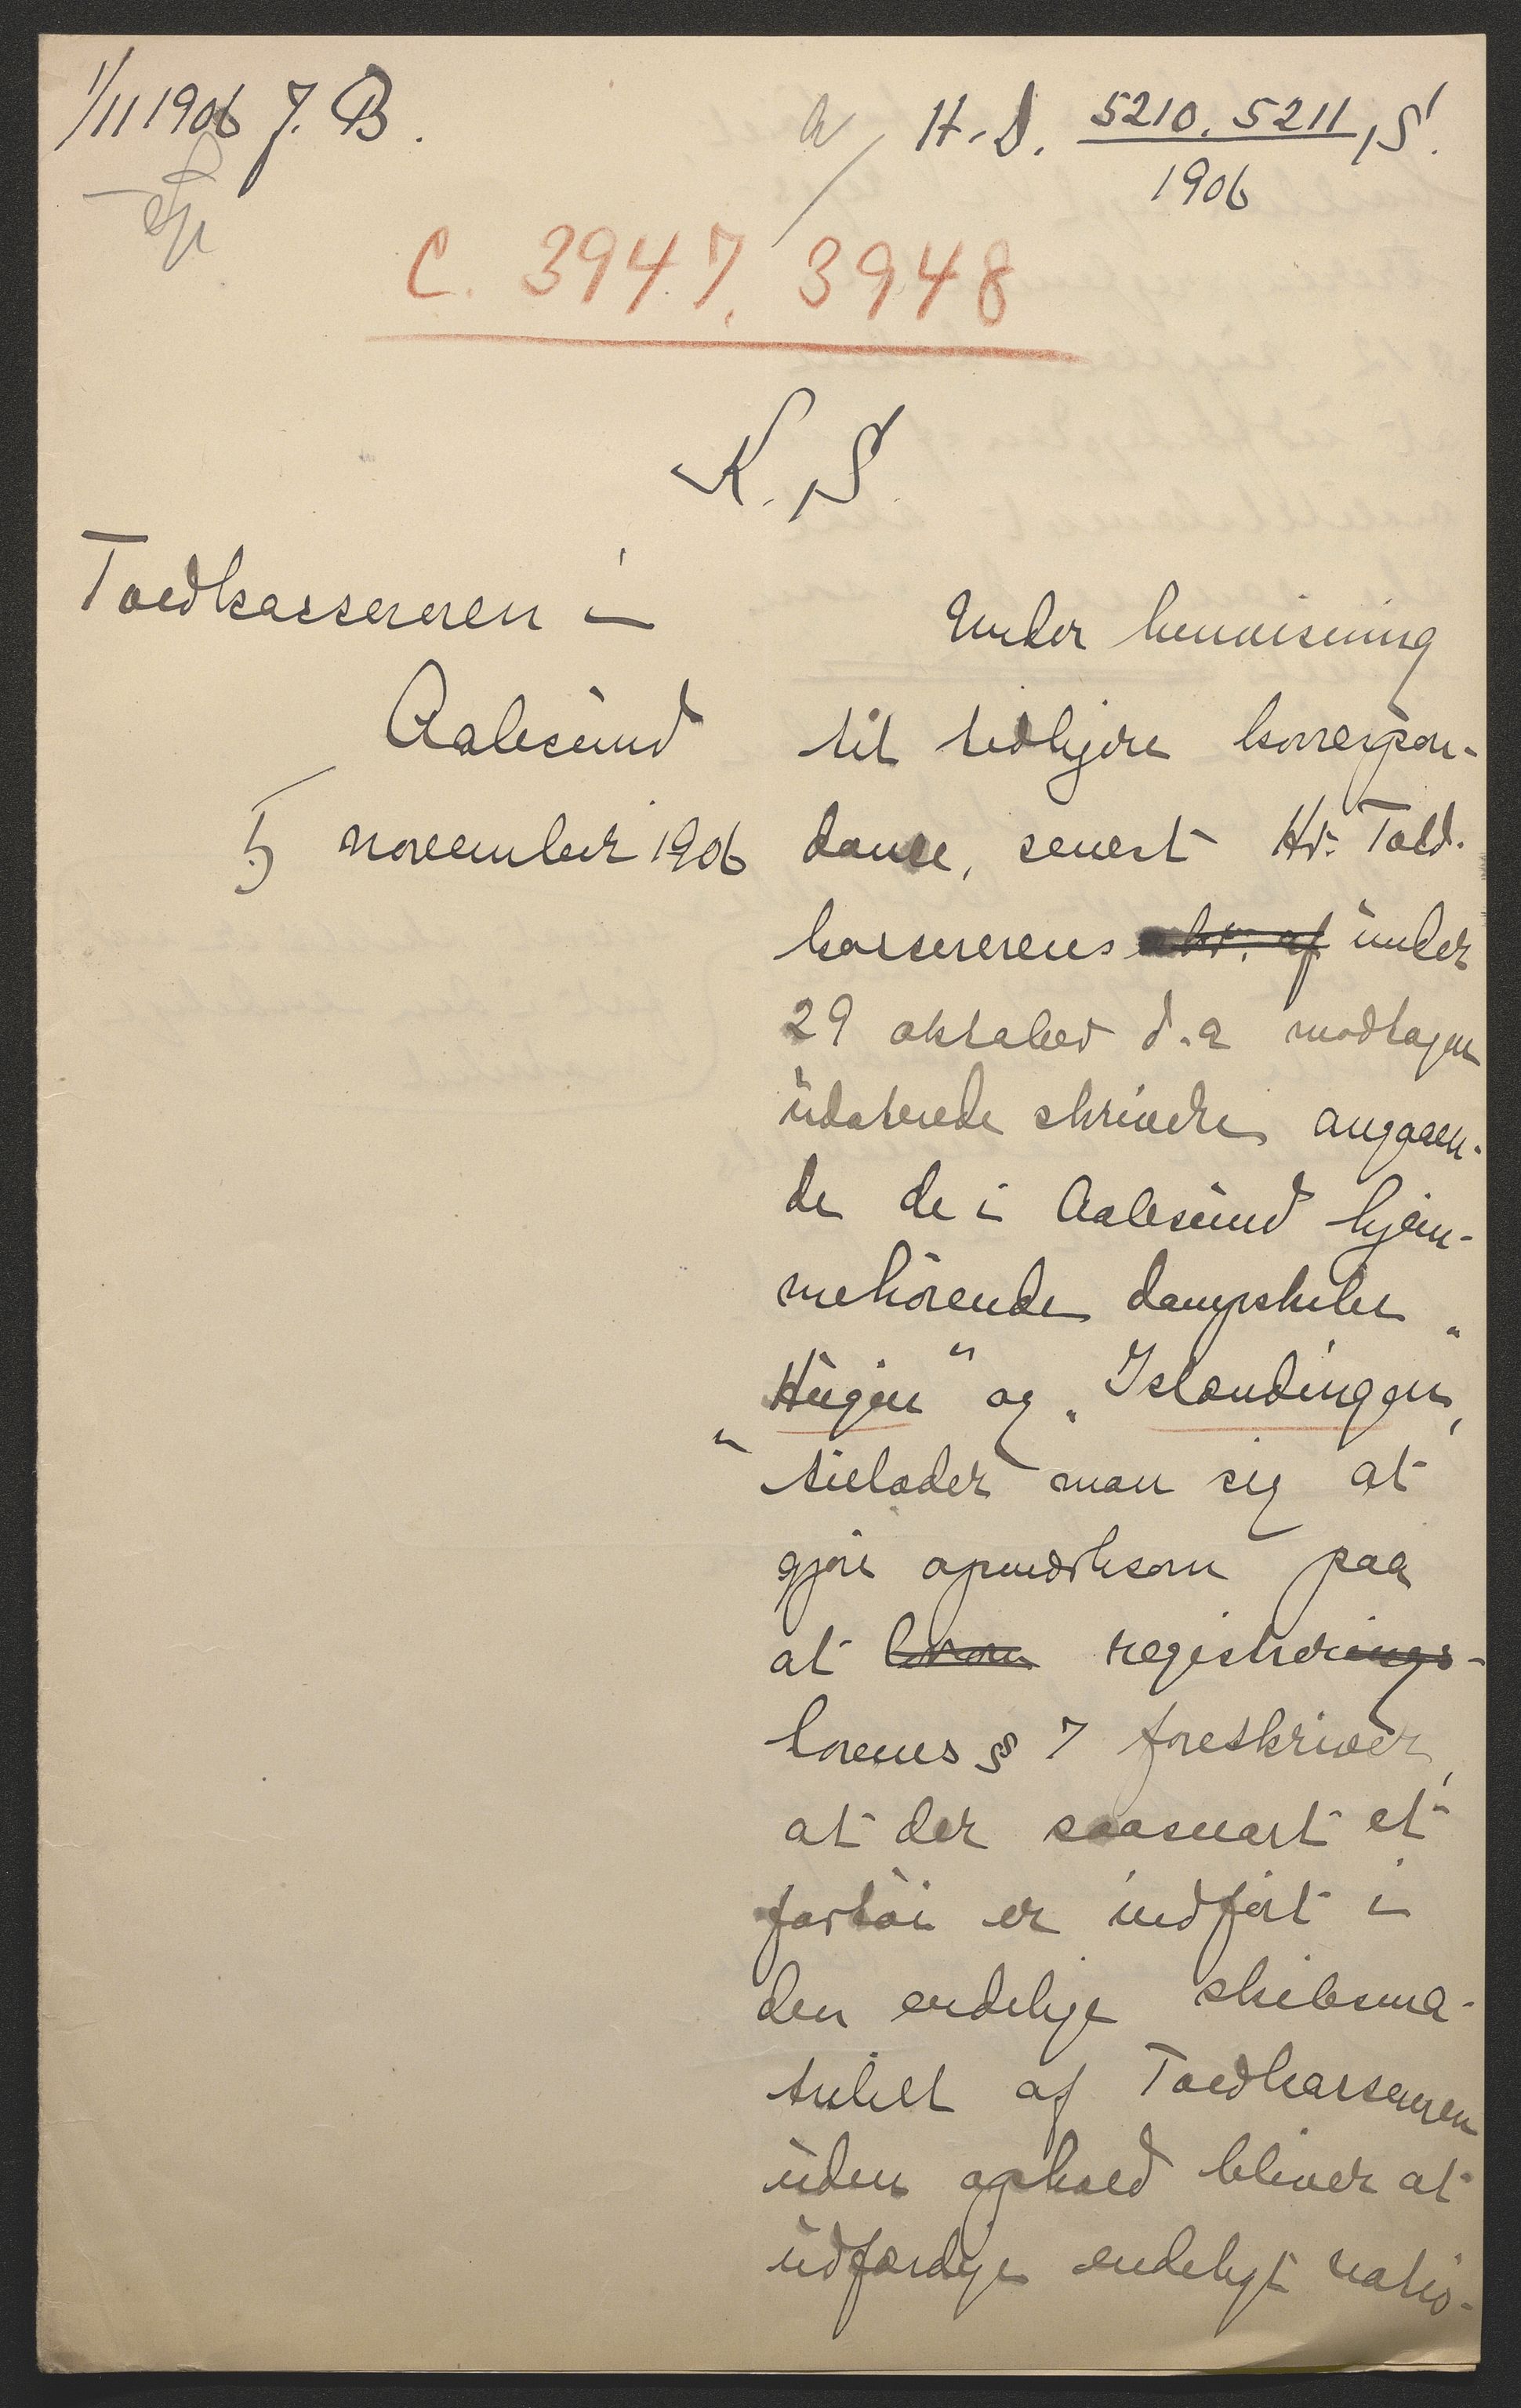 1/11 1906 J. B.
H. D. 5210. 5211 S.
1906
C. 3947, 3948
K. S.
Toldkassereren i
Aalesund
5 november 1906
Under henvisning
til tidligere korrespon-
dance, senest Hr. Told-
kassererens skr. af under
29 oktober d.a modtagne
udaterede skrivelse angaaen-
de de i Aalesund hjem-
mehörende dampskibe "
Hugin" og "Islændingen,
" tillader man sig at
gjøre opmærksom paa
at loven registrerings-
lovens § 7 foreskriver,
at der saasnart et
fartöi er indført i
den endelige skibsma-
trikel af Toldkassereren
uden ophold bliver at
udfærdige endeligt natio-